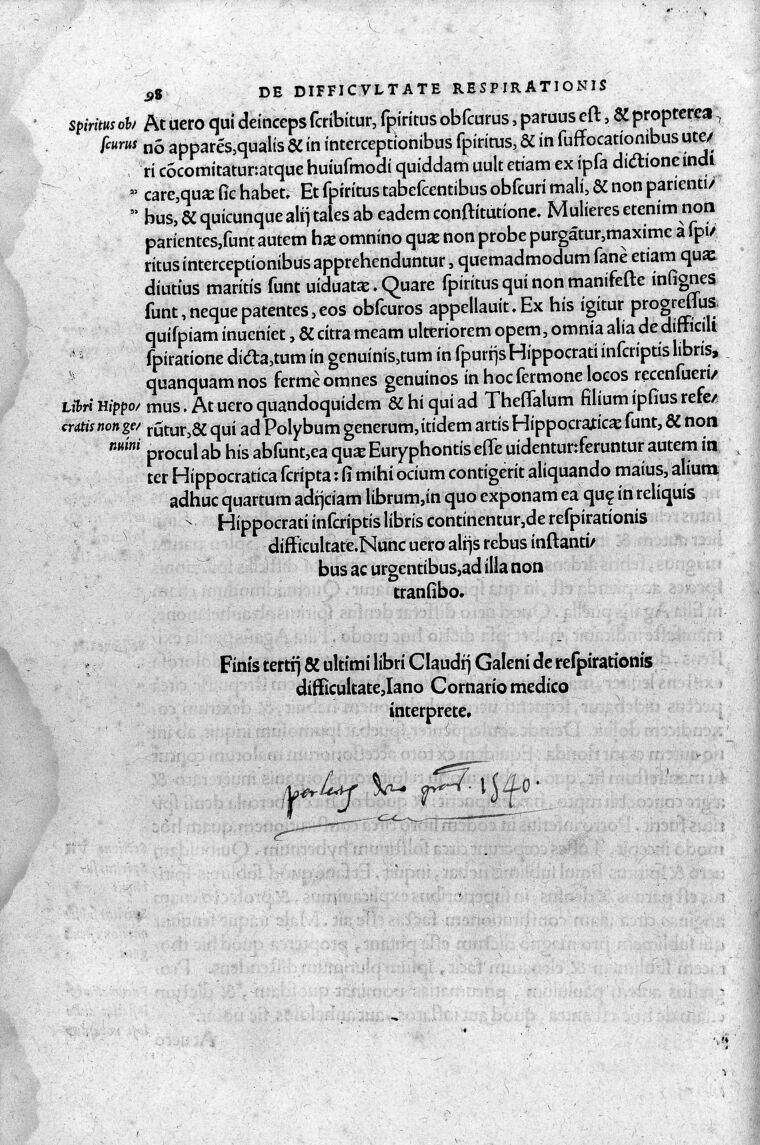 98
DE DIFFICVLTATE RESPIRATIONIS
Spiritus ob/
scurus
At uero qui deinceps scribitur, spiritus obscurus, paruus est, & propterea
nõ apparẽs, qualis & in interceptionibus spiritus, & in suffocationibus ute/
ri cõcomitatur: atque huiusmodi quiddam uult etiam ex ipsa dictione indi
„ care, quæ sic habet. Et spiritus tabescentibus obscuri mali, & non parienti/
„ bus, & quicunque alij tales ab eadem constitutione. Mulieres etenim non
parientes, sunt autem hæ omnino quæ non probe purgãtur, maxime à spi/
ritus interceptionibus apprehenduntur, quemadmodum sanè etiam quæ
diutius maritis sunt uiduatæ. Quare spiritus qui non manifeste insignes
sunt, neque patentes, eos obscuros appellauit. Ex his igitur progressus
quispiam inueniet, & citra meam ulteriorem opem, omnia alia de difficili
spiratione dicta, tum in genuinis, tum in spurijs Hippocrati inscriptis libris,
quanquam nos fermè omnes genuinos in hoc sermone locos recensueri/
Libri Hippo/
cratis non ge/
nuini
mus. At uero quandoquidem & hi qui ad Thessalum filium ipsius refe/
rũtur, & qui ad Polybum generum, itidem artis Hippocraticæ sunt, & non
procul ab his absunt, ea quæ Euryphontis esse uidentur: feruntur autem in
ter Hippocratica scripta: si mihi ocium contigerit aliquando maius, alium
adhuc quartum adijciam librum, in quo exponam ea quę in reliquis
Hippocrati inscriptis libris continentur, de respirationis
difficultate. Nunc uero alijs rebus instanti/
bus ac urgentibus, ad illa non
transibo.
Finis tertij & ultimi libri Claudij Galeni de respirationis
difficultate, Iano Cornario medico
interprete.
1540.